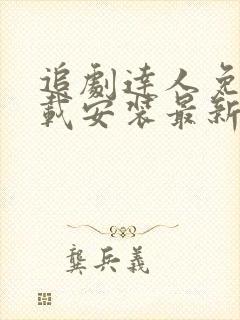 追劇達人免
載安裝最新
龔兵義